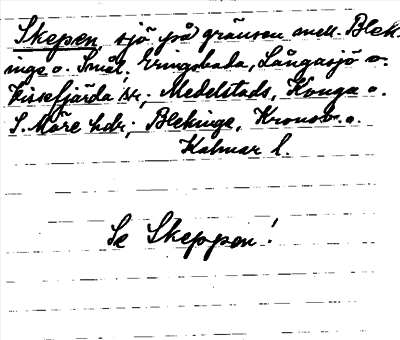 Skepen, sjö på gränsen mell. Blek-
inge o. Smål., Eringsboda, Långasjö o.
Vissefjärda sk:r; Medelstads, Konga o.
S. Möre hdr; Blekinge, Kronob. o.
Kalmar l.
Se Skeppen!